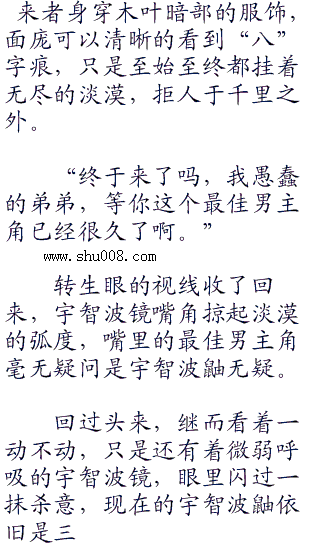 来者身穿木叶暗部的服饰，
面庞可以清晰的看到“八”
字痕，只是至始至终都挂着
无尽的淡漠，拒人于千里之
外。
“终于来了吗，我愚蠢
的弟弟，等你这个最佳男主
角已经很久了啊。”
www.shu008.com
转生眼的视线收了回
来，宇智波镜嘴角掠起淡漠
的弧度，嘴里的最佳男主角
毫无疑问是宇智波鼬无疑。
回过头来，继而看着一
动不动，只是还有着微弱呼
吸的宇智波镜，眼里闪过一
抹杀意，现在的宇智波鼬依
旧是三